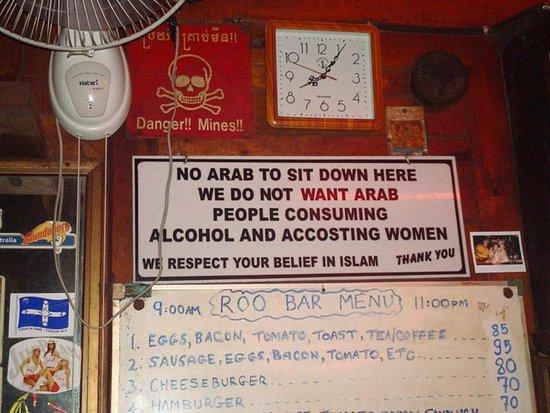 ប្រយ័ត្នគ្រាប់មីន!!
Danger!! Mines!!
Hatari
2
12
1
2
3
4
5
6
7
8
9
10
11
NO ARAB TO SIT DOWN HERE
WE DO NOT WANT ARAB
PEOPLE CONSUMING
ALCOHOL AND ACCOSTING WOMEN
WE RESPECT YOUR BELIEF IN ISLAM THANK YOU
9:00AM ROO BAR MENU 11:00PM
1. EGGS, BACON, TOMATO, TOAST, TEA/COFFEE 85
2. SAUSAGE, EGGS, BACON, TOMATO, ETC 95
3 CHEESEBURGER 90
4 HAMBURGER 70
70